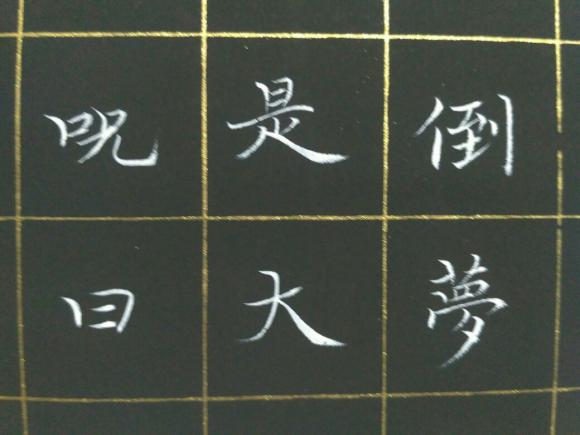 倒夢
是大
呪曰